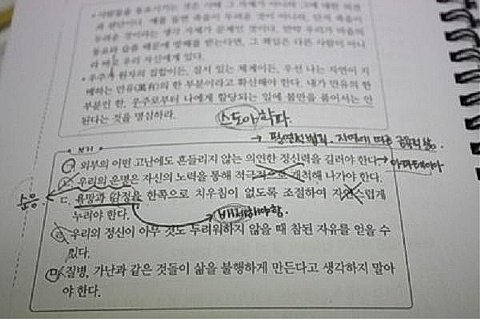 • 사람들을 동요시키는 것은 사태 그 자체가 아니라 그에 대한 의견과 판단이다. 예를 들면 죽음이 두려운 것이 아니라, 단지 죽음이
두려운 것이라는 생각 자체가 문제인 것이다. 만약 우리가 마음의
동요와 슬픔 때문에 방해를 받는다면, 그 책임은 다른 사람이 아니
라 바로 우리 자신에게 있다.
• 우주가 원자의 집합이든, 질서 있는 체계이든, 우선 나는 자연이 지
배하는 만유(萬有)의 한 부분이라고 확신해야 한다. 내가 만유의 한
부분인 한, 우주로부터 나에게 할당되는 일에 불만을 품어서는 안
된다는 것을 명심하라.
스토아 학파
보기
ㄱ. 외부의 어떤 고난에도 흔들리지 않는 의연한 정신력을 길러야 한다.
아파테이아
ㄴ. 우리의 운명은 자신의 노력을 통해 적극적으로 개척해 나가야 한다.
순응
ㄷ. 욕망과 감정을 한쪽으로 치우침이 없도록 조절하여 자연스럽게
누리야 한다.
배제해야함.
ㄹ. 우리의 정신이 아무 것도 두려워하지 않을 때 참된 자유를 얻을 수
있다.
ㅁ. 질병, 가난과 같은 것들이 삶을 불행하게 만든다고 생각하지 말아
야 한다.